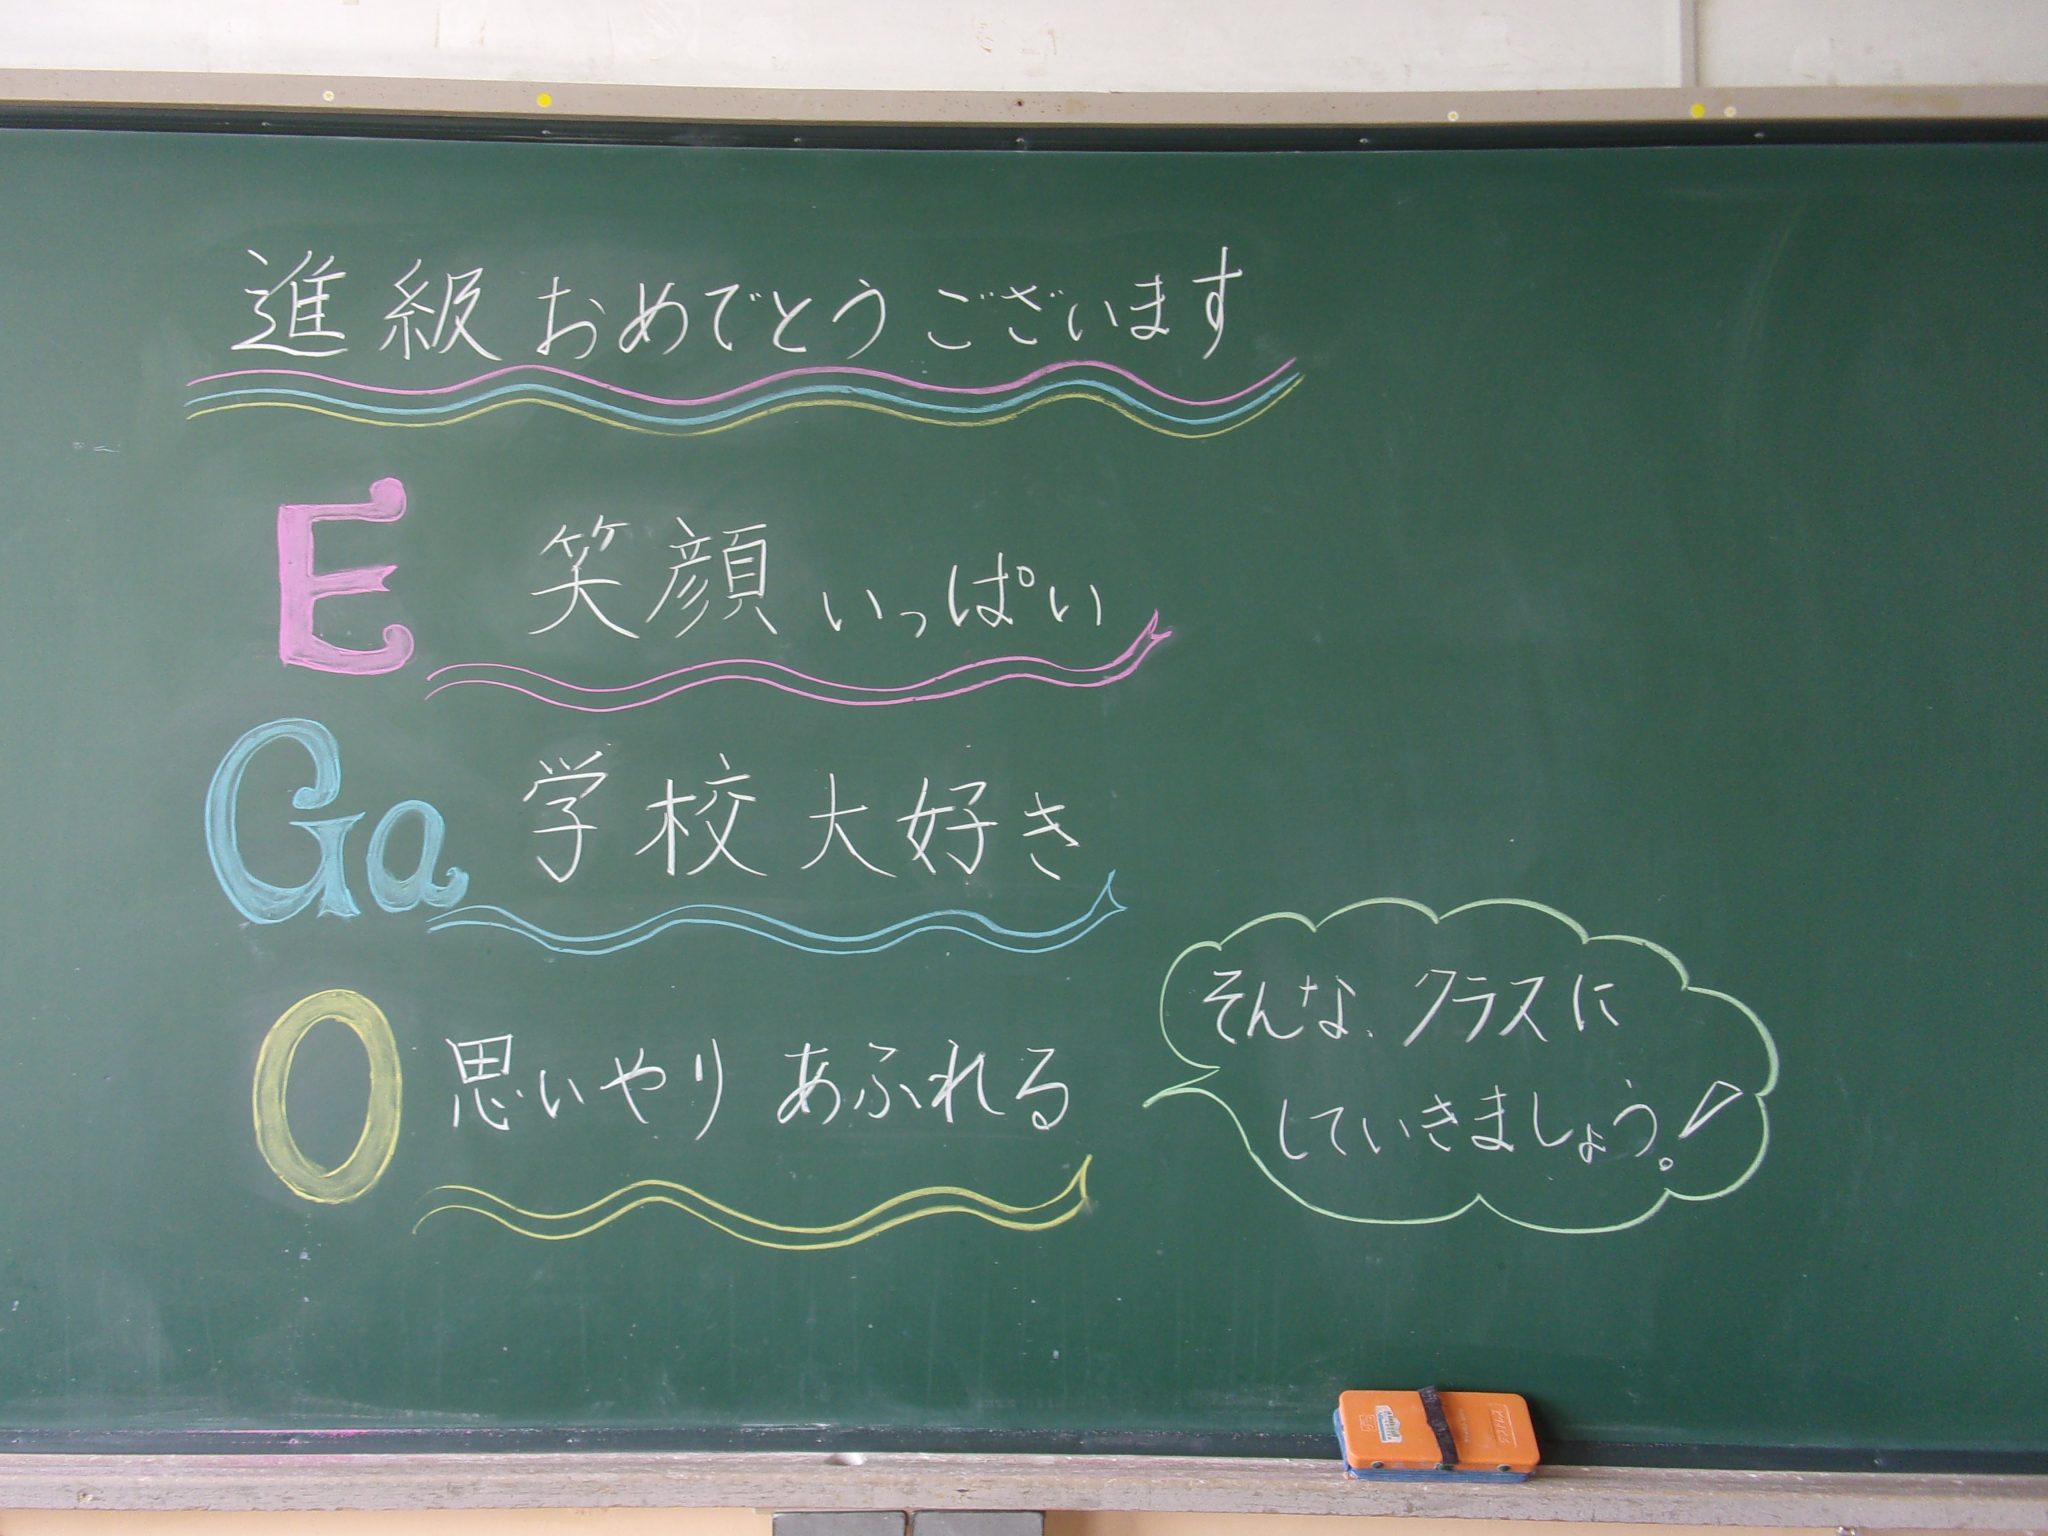 進級おめでとうございます
E 笑顔いっぱい
Ga 学校大好き
O 思いやりあふれる
そんな、クラスに
していきましょう!